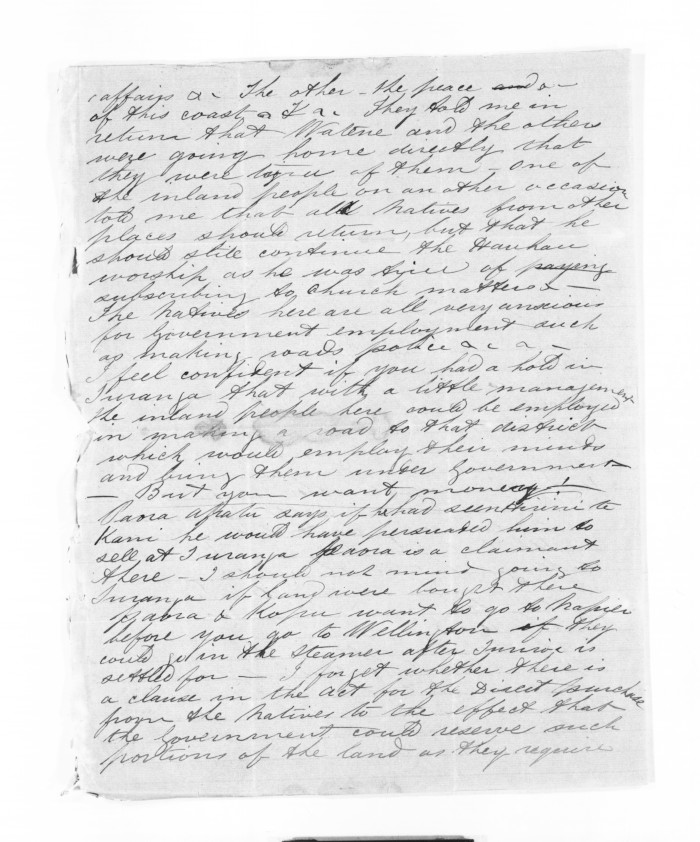 affairs &c. The other - the peace and o-
of this coast &c &c. They told me in
return that Watene and the others
were going home directly that
they were tired of them - One of
the inland people on another occasion
told me that all Natives from other
places should return, but that he
should still continue the Hauhau
worship as he was tired of paying
subscribing to Church matters -
The Natives here are all very anxious
for Government employment such
as making roads police &c &c -
I feel confident if you had a hold in
Turanga that with a little management
the inland people here could be employed
in making a road to that district
which would employ their minds
and bring them under Government
- But you want money!
Paora Apatu says if he had seen Hirini te
Kani he would have persuaded him to
sell at Turanga Paora is a claimant
there - I should not mind going to
Turanga if land were bought there
Paora & Kopu want to go to Napier
before you go to Wellington if they
could go in the Steamer after Junior is
settled for - I forget whether there is
a clause in the Act for the Direct purchase
from the Natives to the effect that
the Government could reserve such
portions of the land as they require